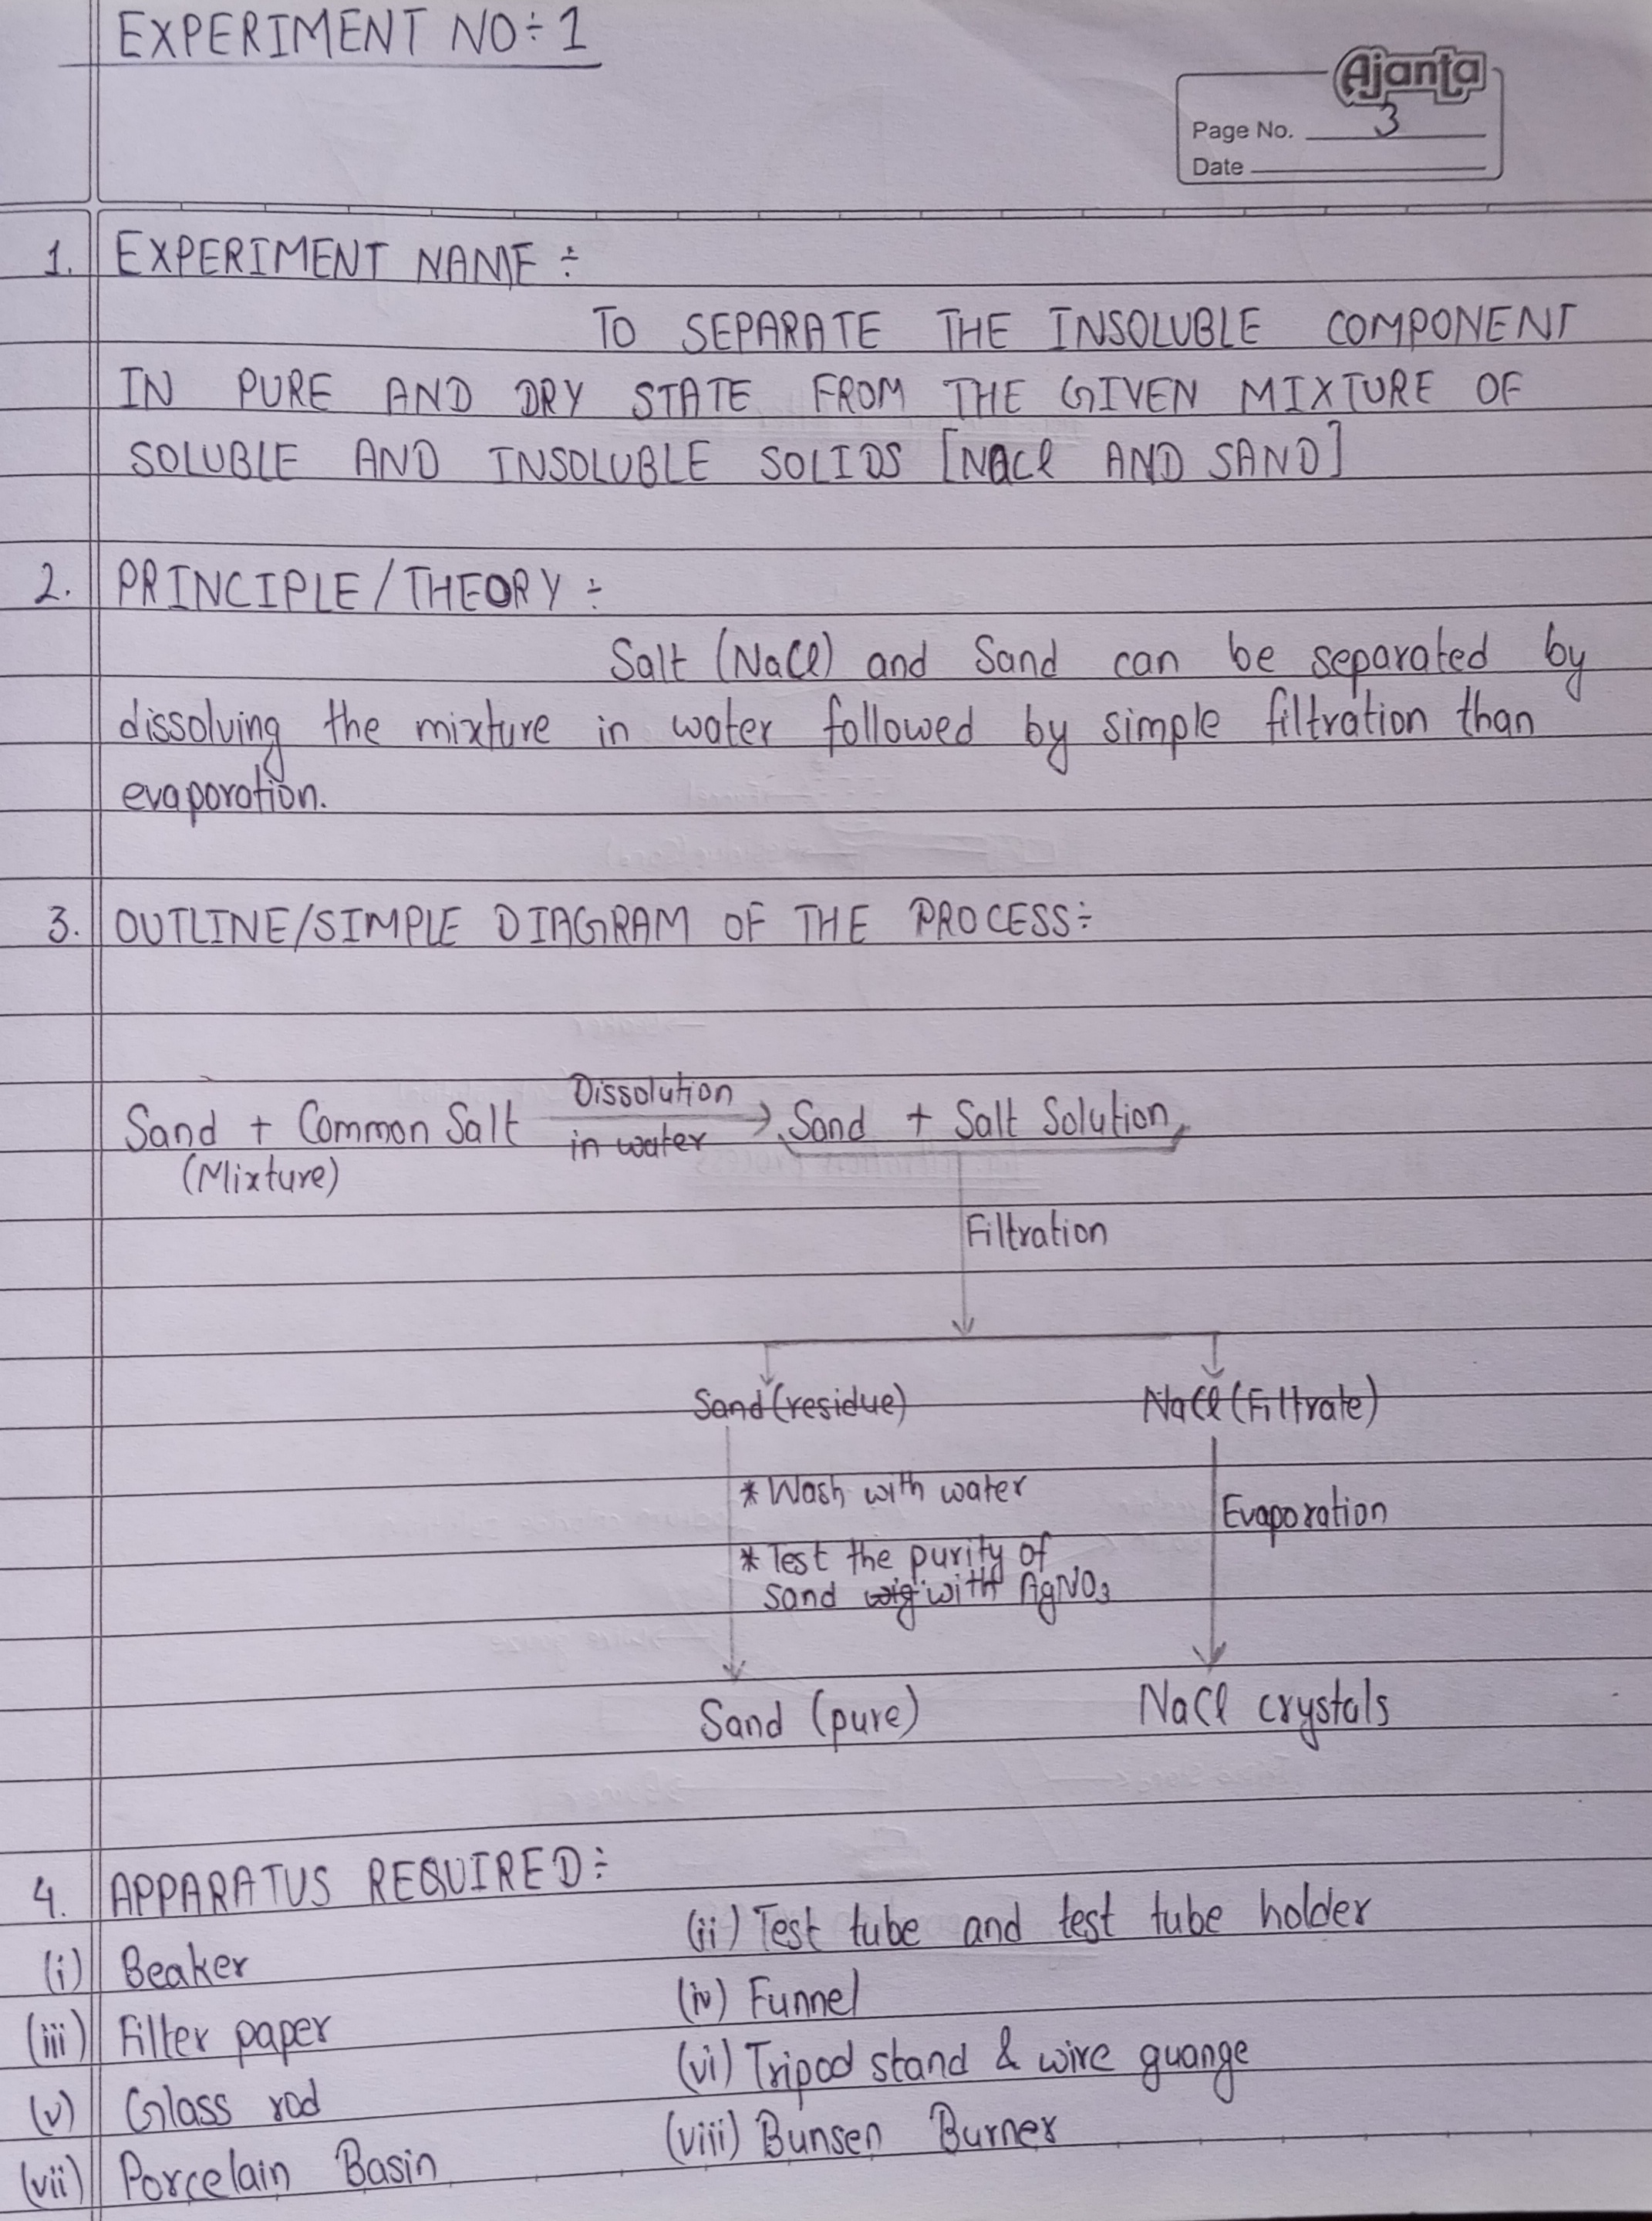 EXPERIMENT NO÷ 1
Ajanta
Page No. 3
Date
1. EXPERIMENT NAME ÷
TO SEPARATE THE INSOLUBLE COMPONENT
IN PURE AND DRY STATE FROM THE GIVEN MIXTURE OF
SOLUBLE AND INSOLUBLE SOLIDS [NaCl AND SAND]
2. PRINCIPLE/THEORY ÷
Salt (NaCl) and Sand can be separated by
dissolving the mixture in water followed by simple filtration than
evaporation.
3. OUTLINE/SIMPLE DIAGRAM OF THE PROCESS÷
Dissolution
Sand + Common Salt → Sand + Salt Solution
in water
(Mixture)
Filtration
Sand (residue) NaCl (Filtrate)
* Wash with water
Evaporation
* Test the purity of
Sand with AgNO3
Sand (pure) NaCl crystals
4. APPARATUS REQUIRED÷
(i) Beaker (ii) Test tube and test tube holder
(iii) Filter paper (iv) Funnel
(v) Glass rod (vi) Tripod stand & wire guange
(vii) Porcelain Basin (viii) Bunsen Burner